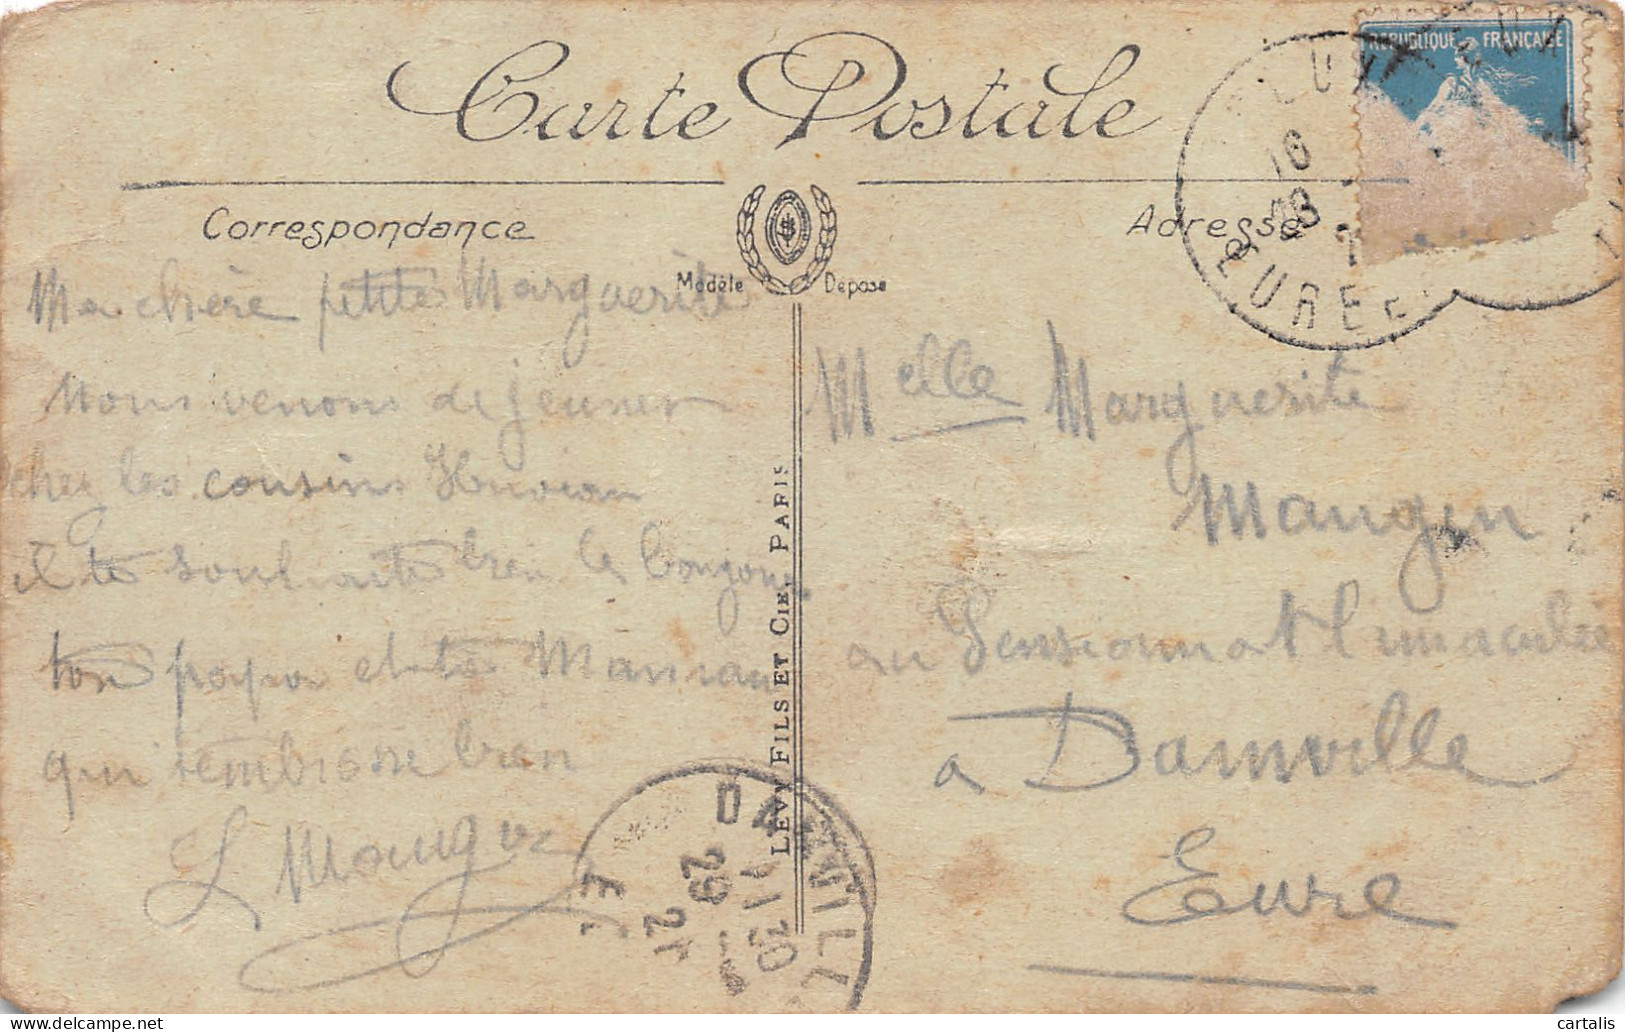 Carte Postale
RÉPUBLIQUE FRANÇAISE
Correspondance
Modèle Déposé
Adresse
EURE
Ma chère petite Marguerite
nous venons de jeuner
chez les cousins
il te souhaite bien le bonjour
ton papa et ta Maman
qui t'embrasse bien
L Mangin
LEVY FILS ET CIE, PARIS
Melle Marguerite
Mangin
au Pensionnat l'imaculée
a Damville
Eure
DAMVILLE
29
cartalis